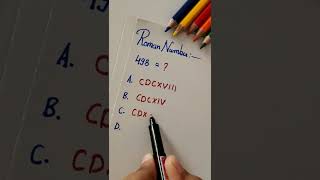 Roman Number:-
498 = ?
A. CDCXVIII
B. CDCXIV
C. CDX
D.